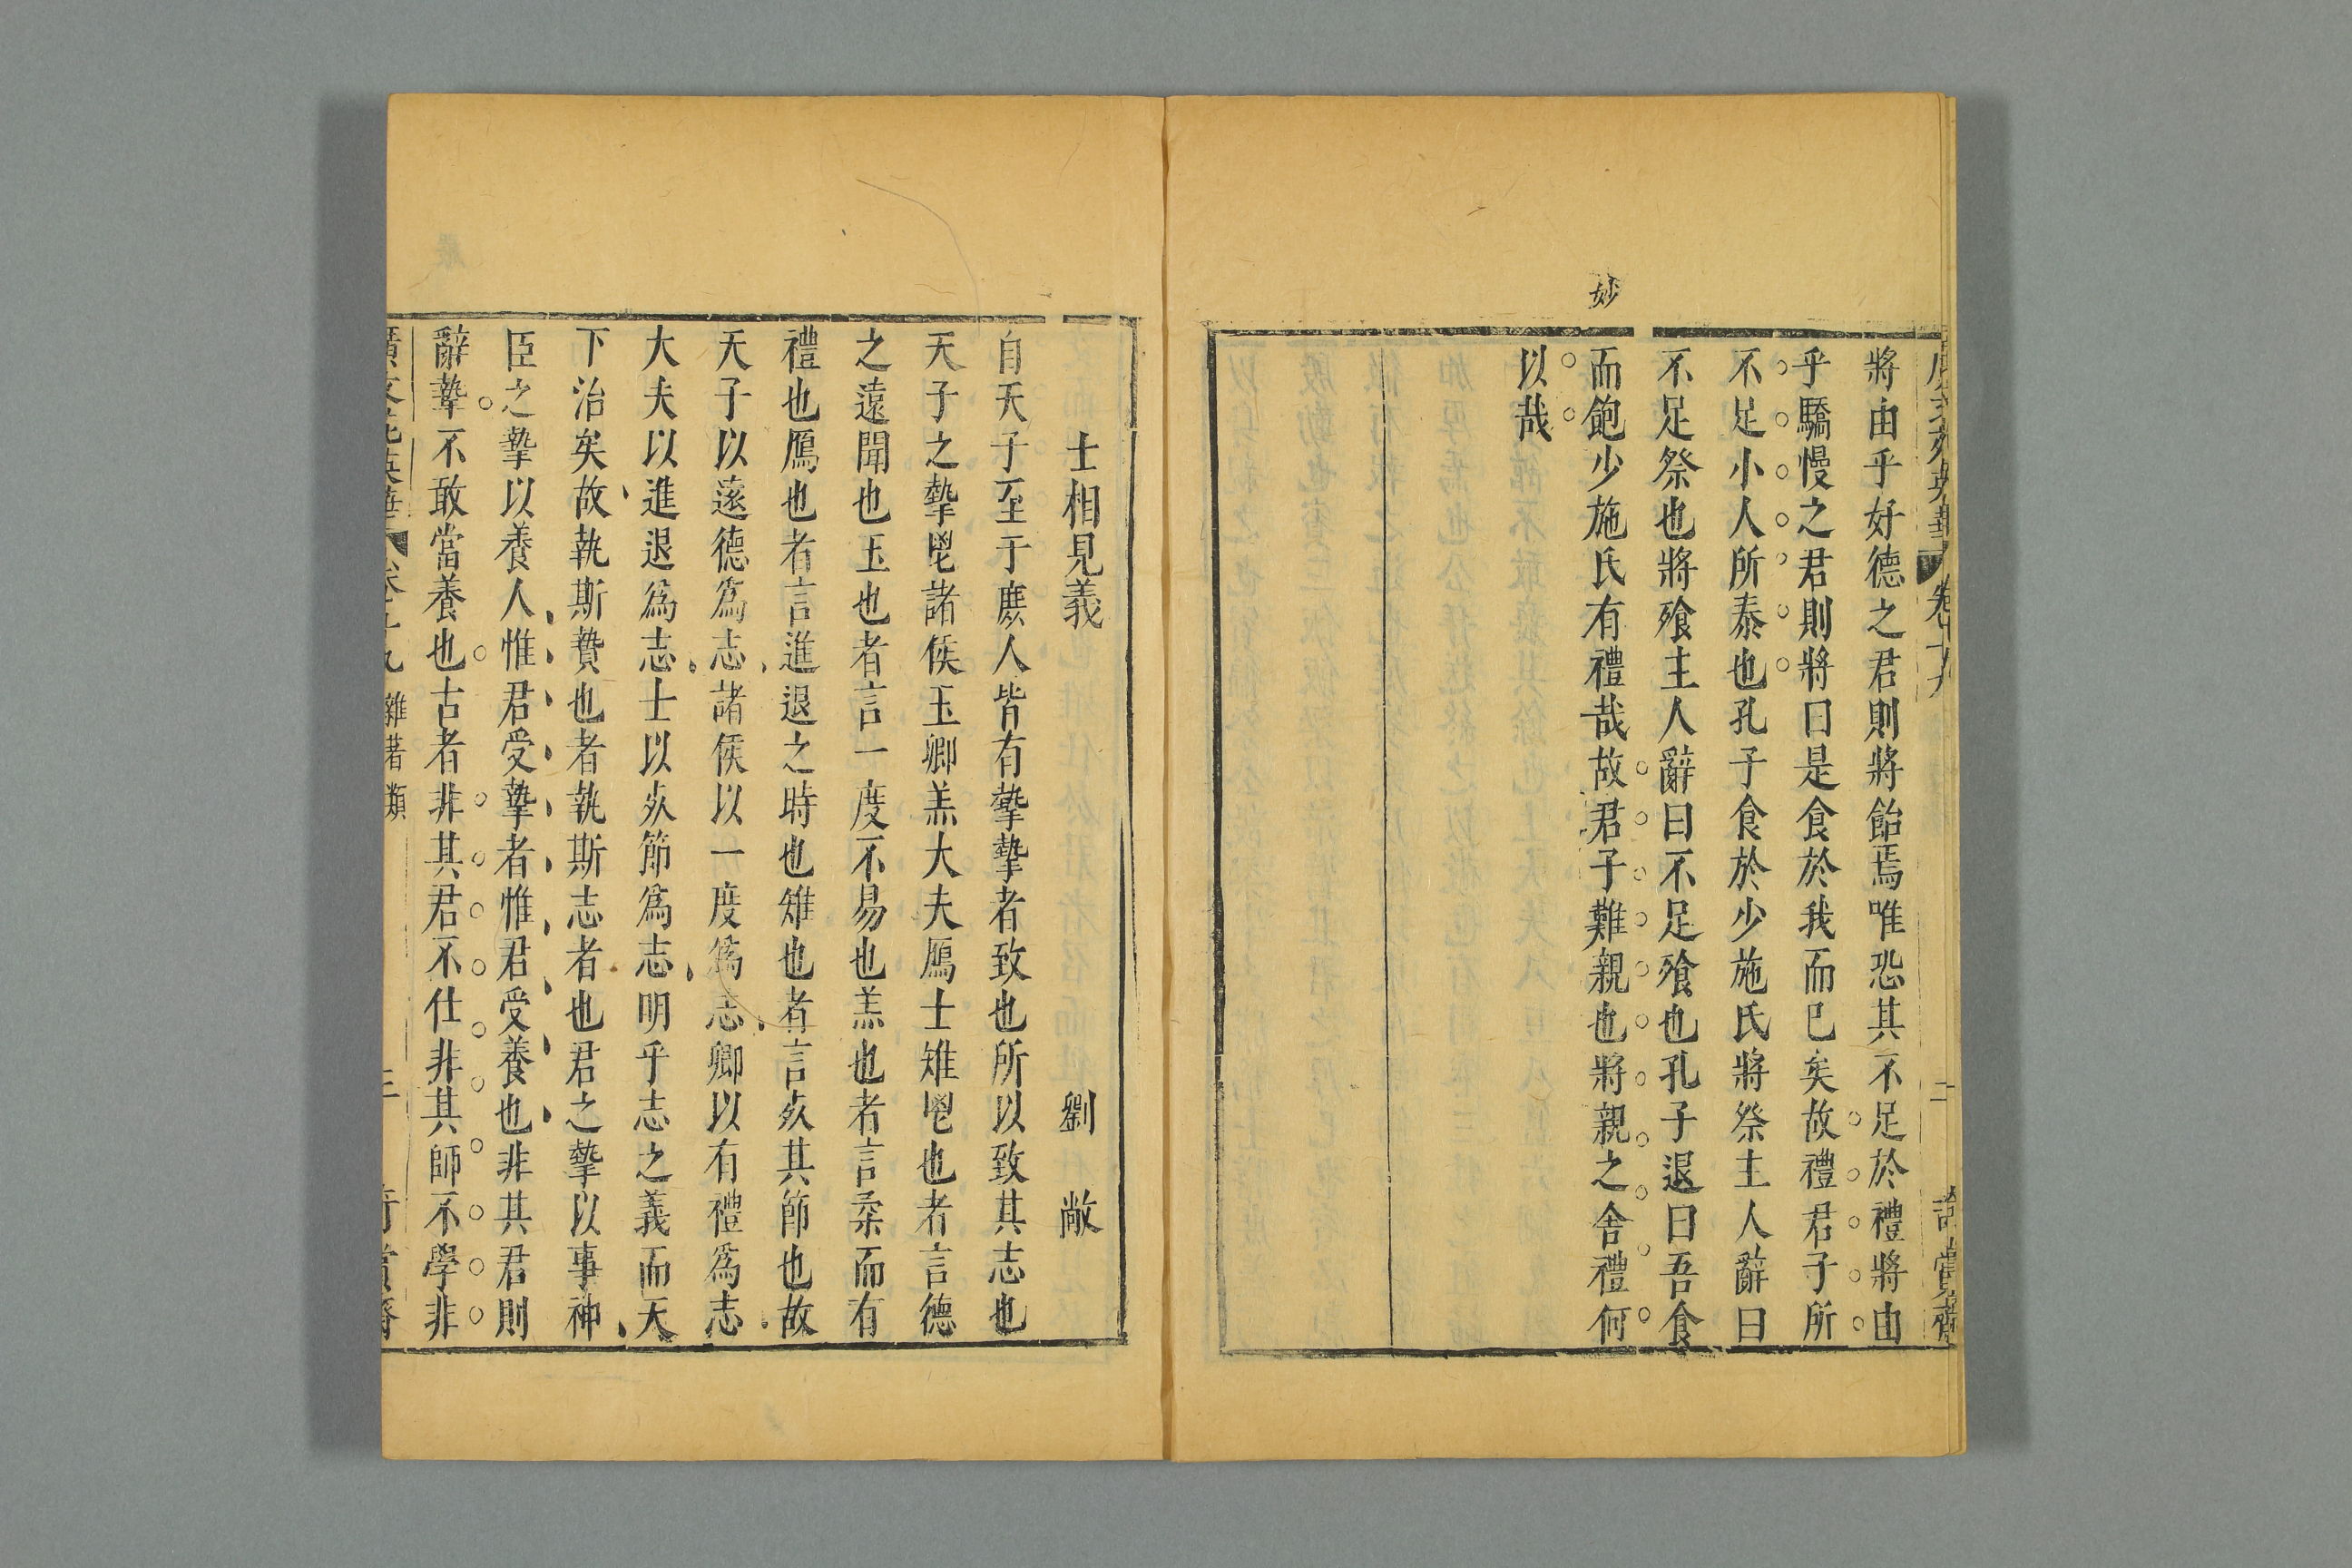 妙
將由乎好德之君則將飴焉唯恐其不足於禮將由
乎驕慢之君則將曰是食於我而已矣故禮君子所
不足小人所泰也孔子食於少施氏將祭主人辭曰
不足祭也將飱主人辭曰不足飱也孔子退曰吾食
而飽少施氏有禮哉故君子難親也將親之舍禮何
以哉
士相見義 劉敞
自天子至于庻人皆有摯摯者致也所以致其志也
天子之摯鬯諸侯玉卿羔大夫鴈士雉鬯也者言德
之遠聞也玉也者言一度不易也羔也者言柔而有
禮也鴈也者言進退之時也雉也者言夾其節也故
天子以遠德爲志諸侯以一度爲志卿以有禮爲志
大夫以進退爲志士以夾節爲志明乎志之義而天
下治矣故執斯贄也者執斯志者也君之摯以事神
臣之摯以養人惟君受摯者惟君受養也非其君則
辭摯不敢當養也古者非其君不仕非其師不學非
雜著類